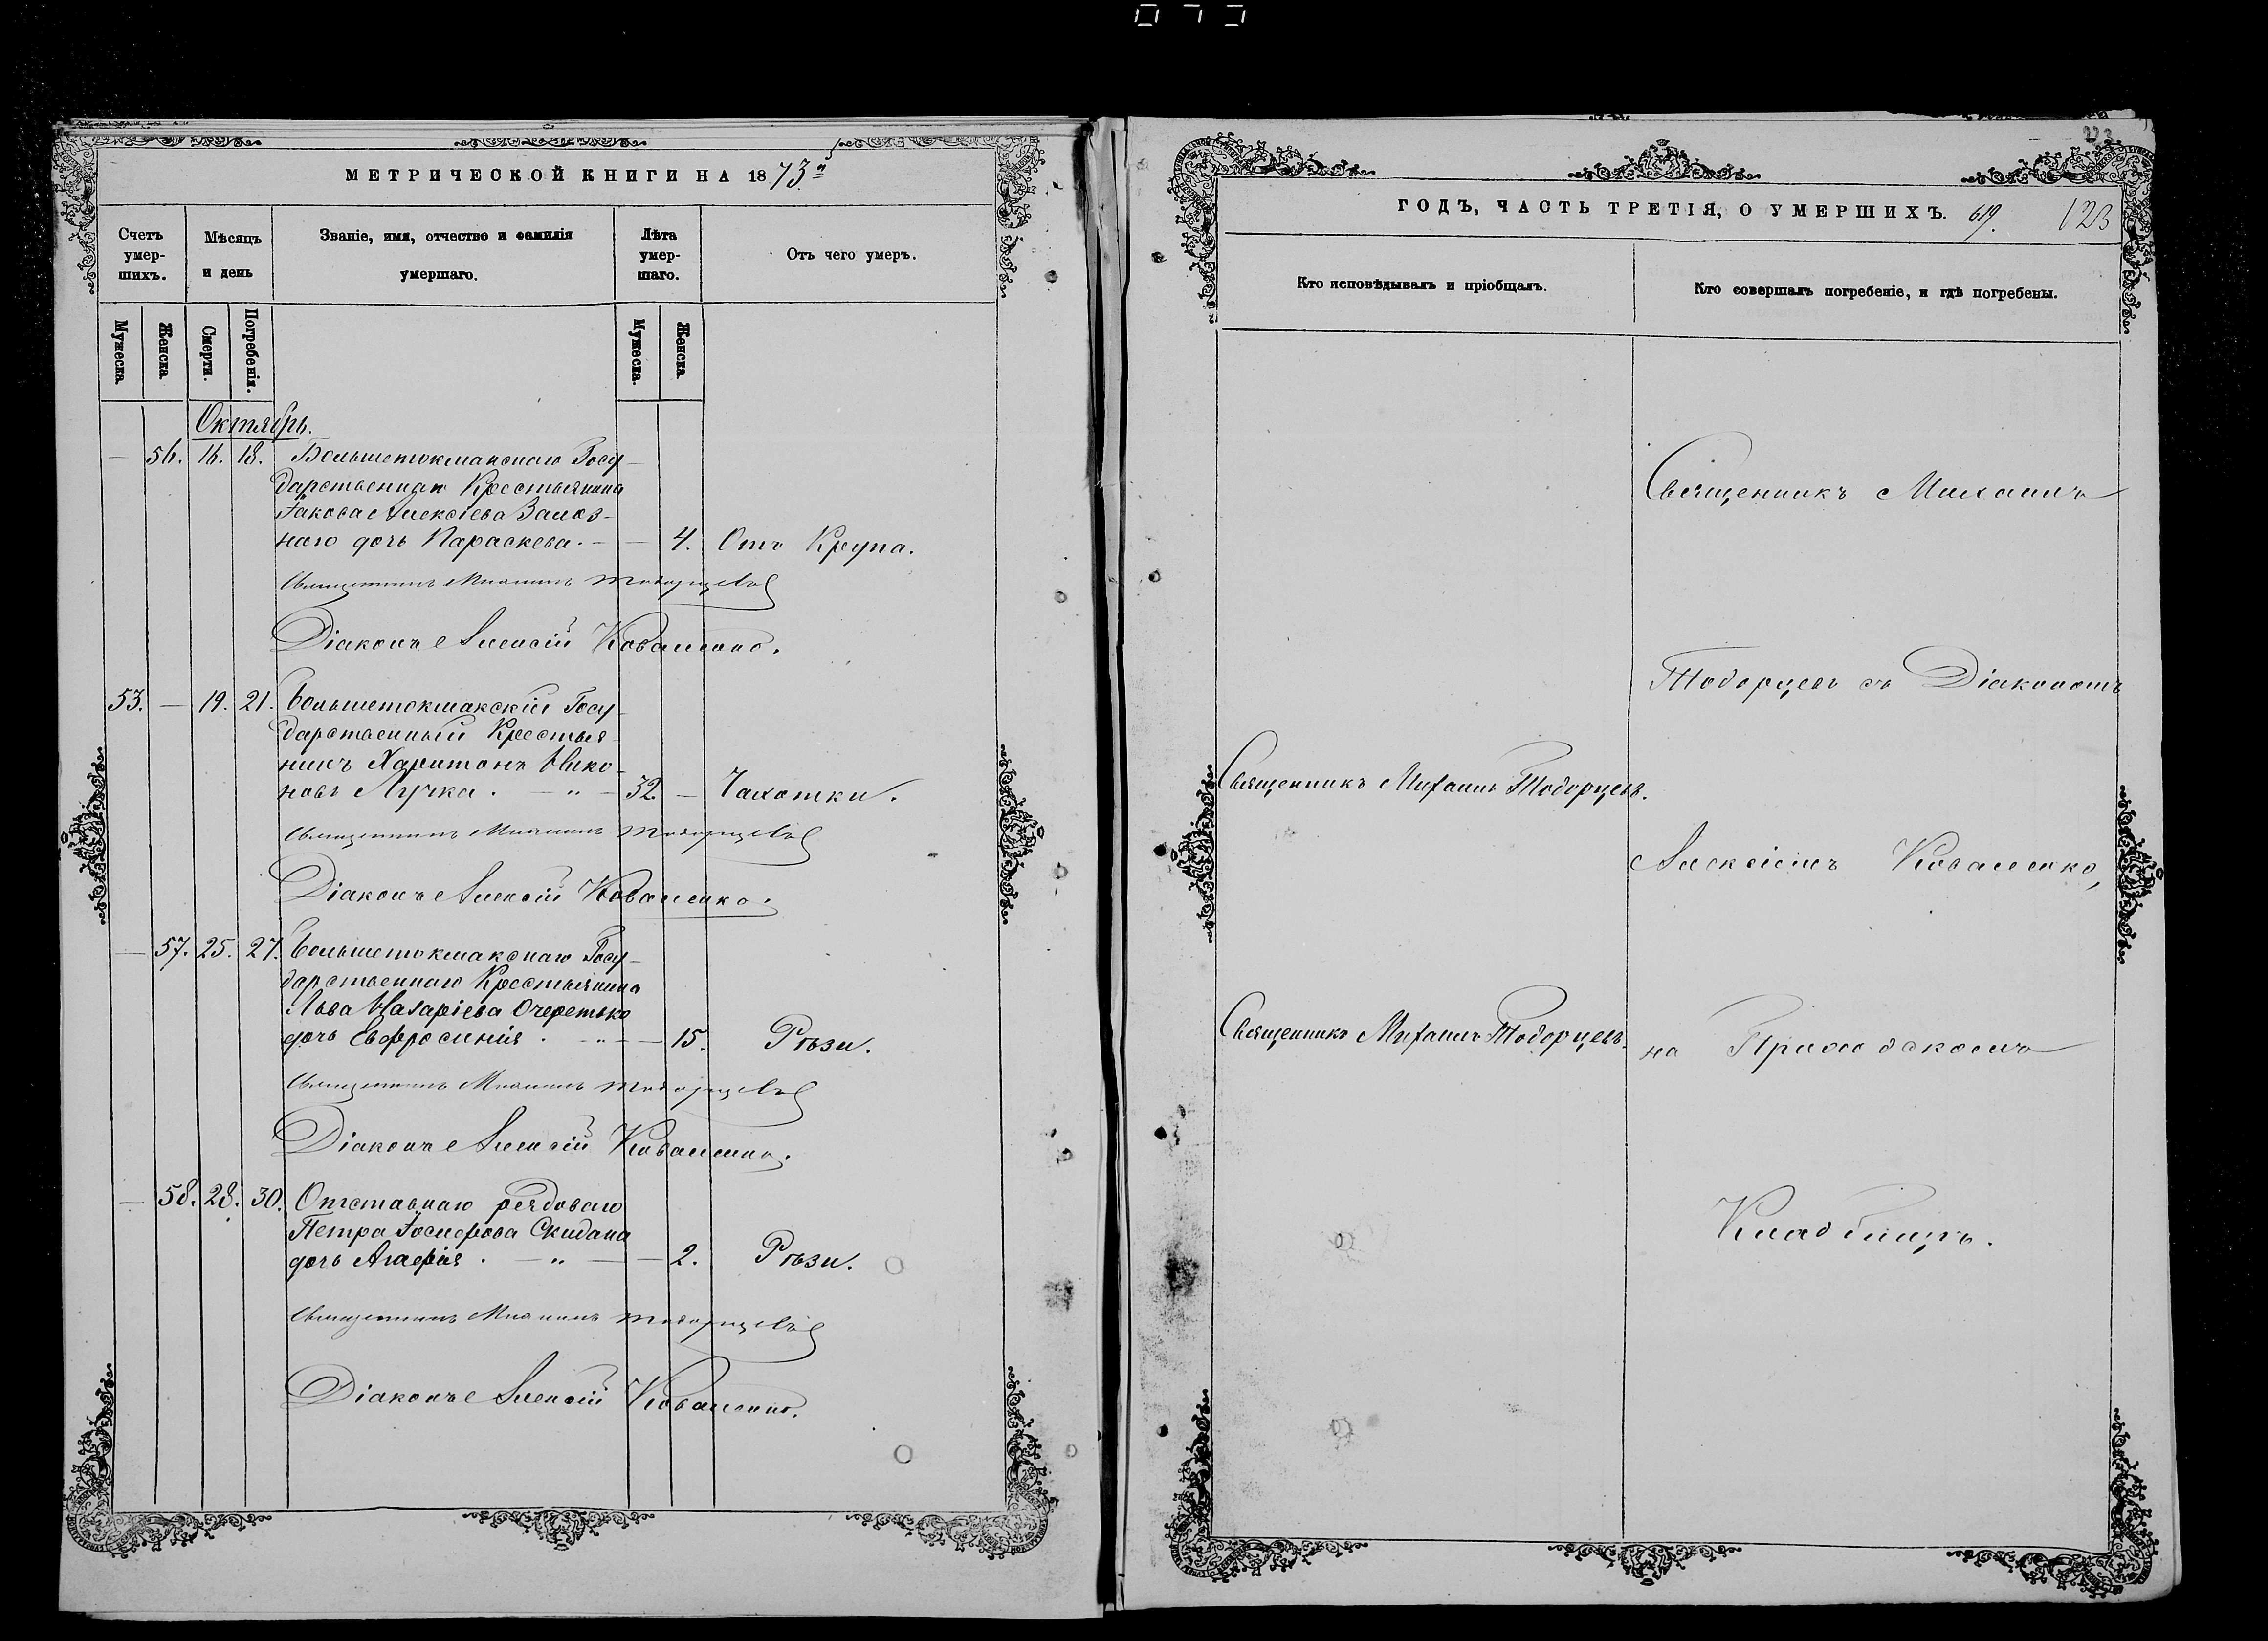 МЕТРИЧЕСКОЙ КНИГИ НА 1873й
Счетъ умер-шихъ.
Мѣсяцъ и день
Званіе, имя, отчество и фамилія умершаго.
Лѣта умер-шаго.
Отъ чего умеръ.
Мужеска.
Женска
Смерти.
Погребенія.
Мужеска.
Женска
Октябрь.
— 56. 16. 18. Большетокмакскаго Госу-
дарственнаго Крестьянина
Іакова Алексіева Залоз-
наго дочь Параскева. — — 4. Отъ Крупа.
Священникъ Михаилъ Тодорцевъ
Діаконъ Алексій Коваленко.
53. — 19. 21. Большетокмакскій Госу-
дарственный Крестья-
нинъ Харитонъ Нико-
новъ Лучка. — " — 32. — Чахотки.
Священникъ Михаилъ Тодорцевъ
Діаконъ Алексій Коваленко.
— 57. 25. 27. Большетокмакскаго Госу-
дарственнаго Крестьянина
Льва Назаріева Очеретько
дочь Евфросинія. — " — — 15. Рѣзи.
Священникъ Михаилъ Тодорцевъ
Діаконъ Алексій Коваленко.
— 58. 28. 30. Отставнаго рядоваго
Петра Іосифова Скидана
дочь Агафія. — " — — 2. Рѣзи.
Священникъ Михаилъ Тодорцевъ
Діаконъ Алексій Коваленко.
ГОДЪ, ЧАСТЬ ТРЕТІЯ, О УМЕРШИХЪ. 619. 123
Кто исповѣдывалъ и пріобщалъ.
Кто совершалъ погребеніе, и гдѣ погребены.
Священникъ Михаилъ
Тодорцевъ съ Діакономъ
Священникъ Михаилъ Тодорцевъ.
Алексіемъ Коваленко,
Священникъ Михаилъ Тодорцевъ.
на Приходскомъ
Кладбищѣ.